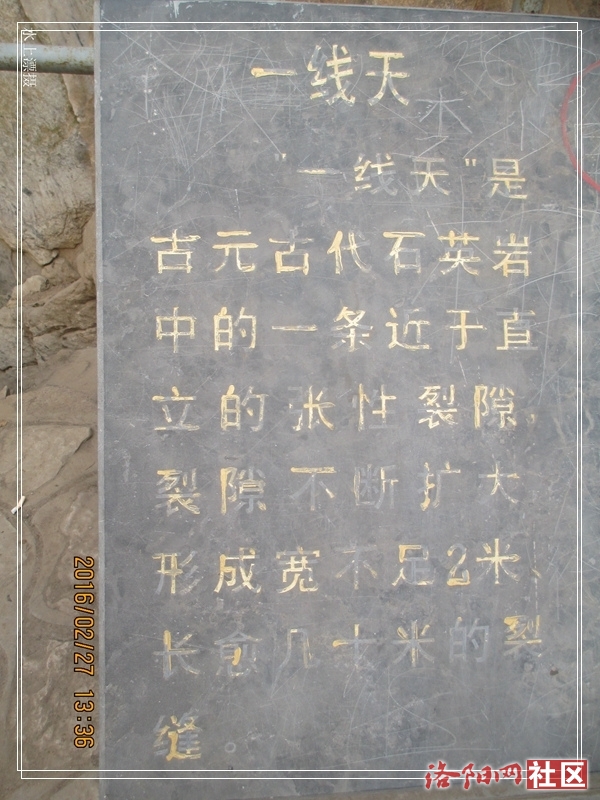 一线天
"一线天"是
古元古代石英岩
中的一条近于直
立的张性裂隙,
裂隙不断扩大
形成宽不足2米、
长愈几十米的裂
缝。
2016/02/27 13:36
水上漂摄
洛阳网社区